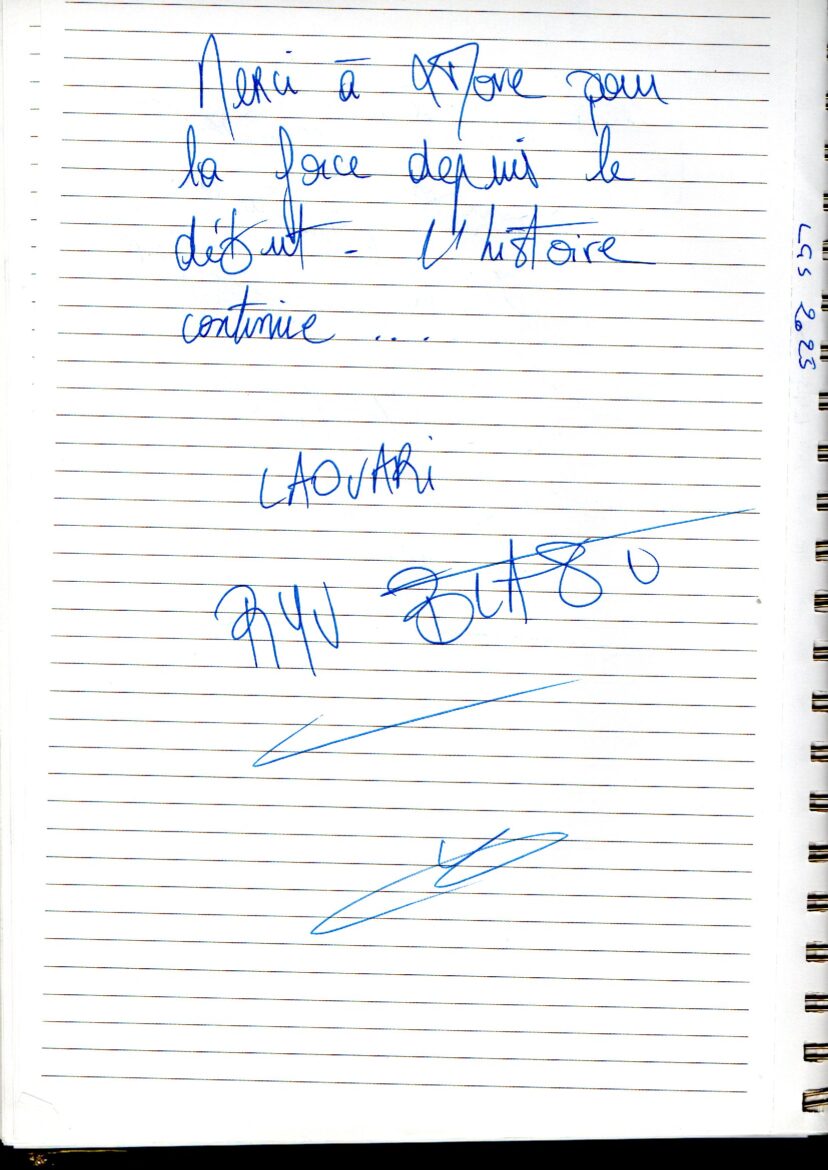 Merci à XMove pour
la force depuis le
début - L'histoire
continue ....
LAOUARi
RYU
LGS 2025